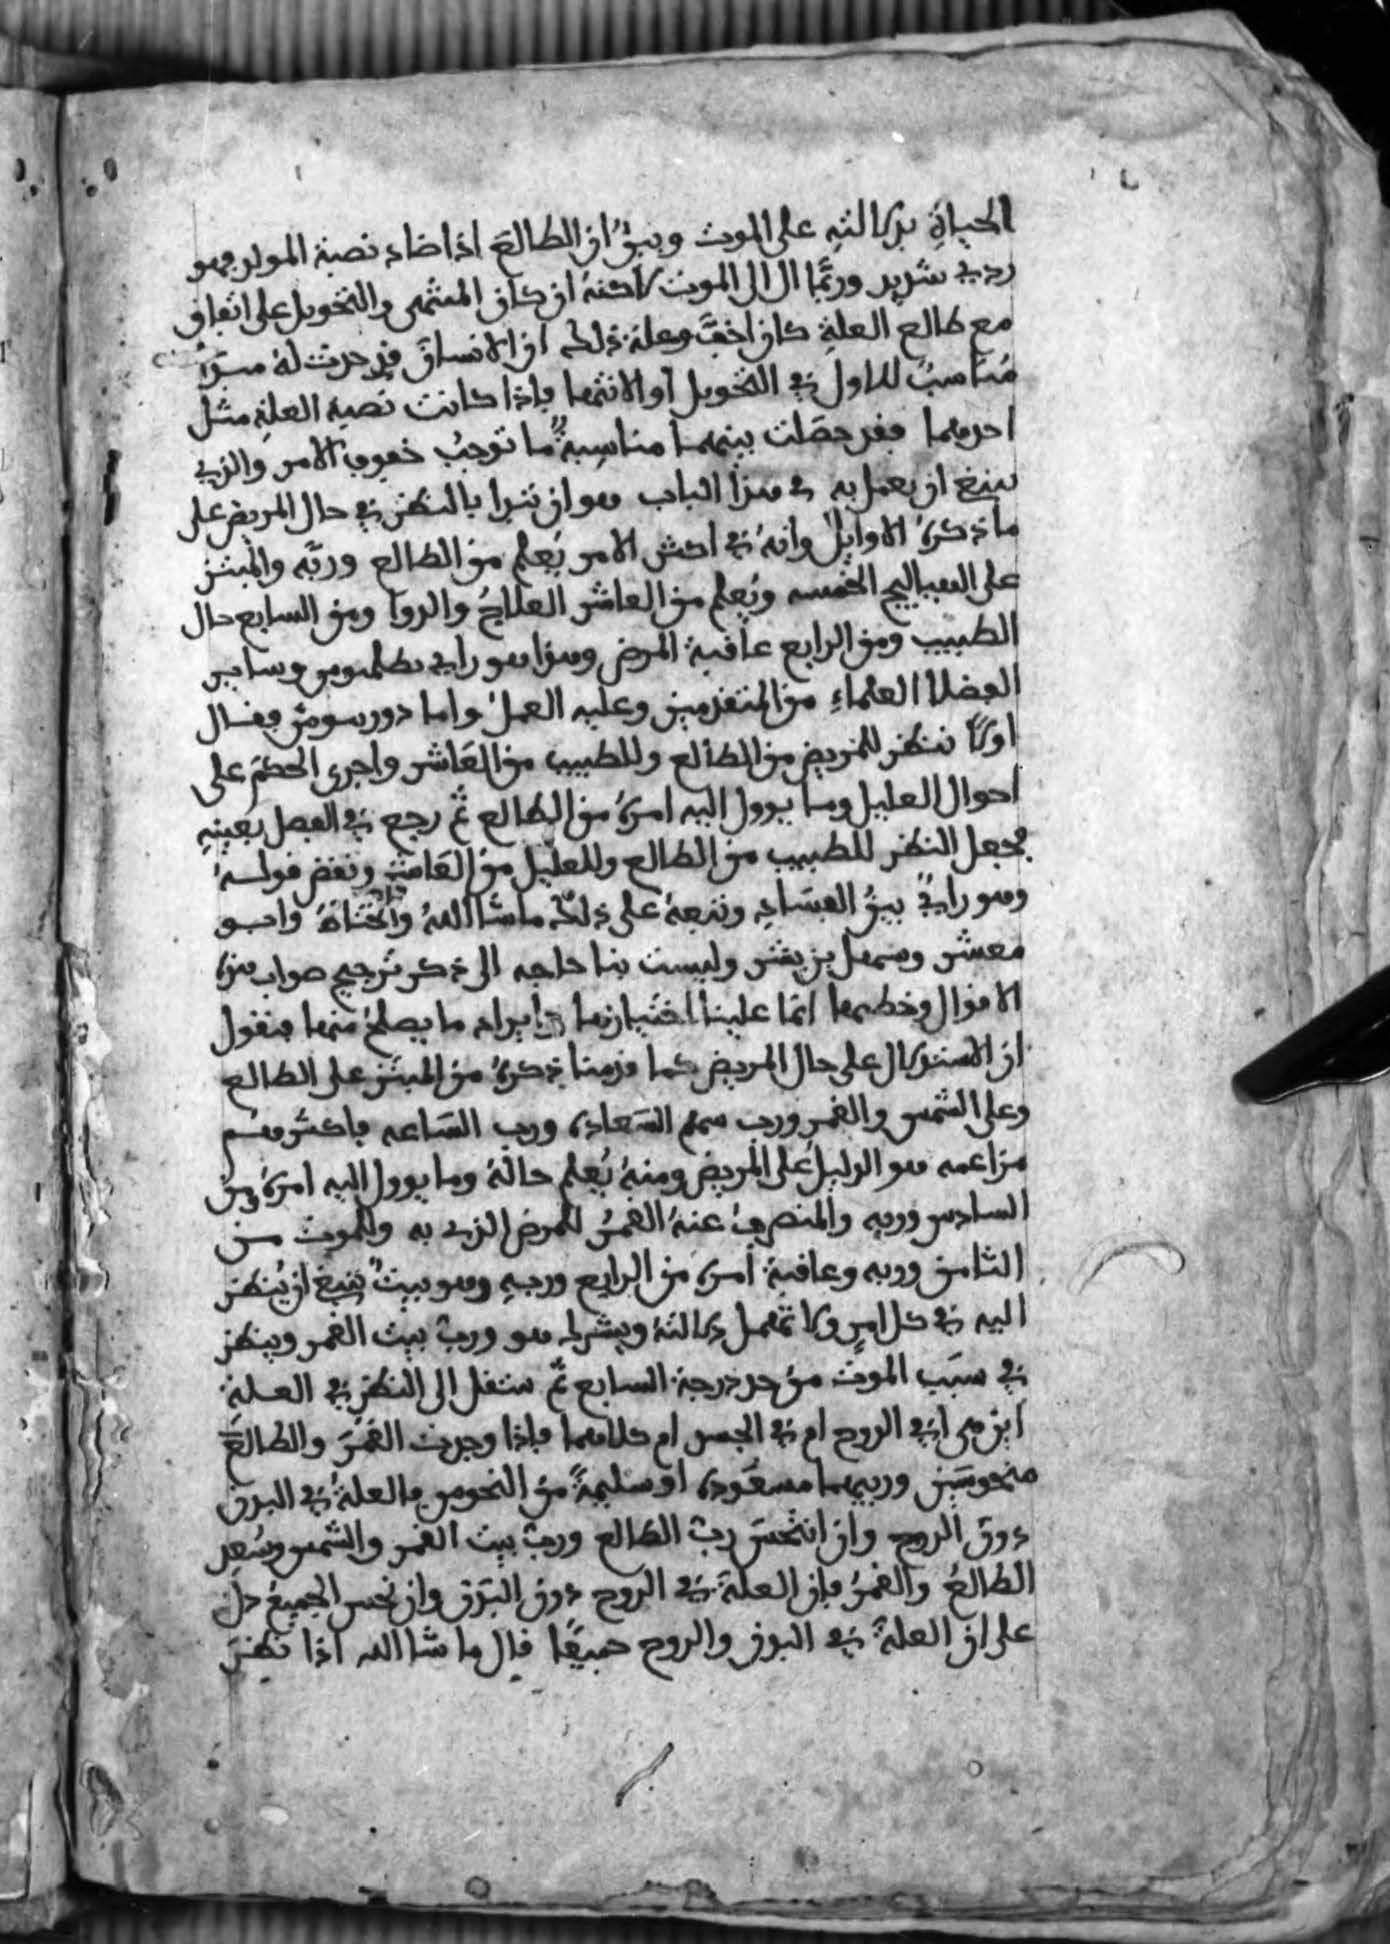 الحياةِ بدلالتهِ على الموت وبينٌ ان الطالعَ اذا ضاد نصبة المولد فهو
ردي شديد وربّما ال الى الموت لاكنهُ ان كان المنتهى والتحويل على اتفاق
مع طالع العلةِ كان اخفّ وعلة ذلك ان الانسان قد حدث له
مُناسبٌ للاول في التحويل او الانتها فاذا كانت نصبة العلةِ مثل
احدهما فقد حصَلت بينهما مناسبةٌ ما توجبُ خفوف الامر والذي
ينبغ ان يعمل به في هذا الباب هو ان تبدا بالنظر في حال المريض على
ما ذكرهُ الاوايلُ وانهُ في اكثر الامر يُعلم من الطالع وربّه والمبتز
على الهياليج الخمسه ويُعلم من العاشر العلاجُ والدوا ومن السابع حال
الطبيب ومن الرابع عاقبة المرض وهذا هو راي بطلميوس وساير
الفضلا العلماءِ من المتقدمين وعليه العملُ واما دوريسوس فقال
اولاً ننظر للمريض من الطالع وللطبيب من العَاشر واجرى الحكمَ على
احوال العليل وما يوول اليه امرهُ من الطالع ثمّ رجع في الفصل بعينهِ
فجعل النظر للطبيب من الطالع وللعليل من العَاشر ونقض قولهُ
وهو رايٌ بينُ الفسَادِ وتبعهُ على ذلك ما شا اللهُ وابو
معشر وسهل بن بشر وليست بنا حاجه الى ذكر ترجيح صواب هذه
الاقوال وخطيها انما علينا اختيارها وايراد ما يصلحُ منها فنقول
ان الاستدلال على حال المريض كما قدمنا ذكرهُ من المبتز على الطالع
وعلى الشمس والقمر ورب سهم السَعاده ورب السَاعه فاكثرهم
مزاعمه هو الدليلُ على المريض ومنهُ يُعلم حالهُ وما يوول اليه امرهُ ومن
السادس وربه والمنصرف عنهُ القمرُ للمرض الذي به وللموت من
الثامن وربه وعاقبة امره من الرابع وربهِ وهو بيتٌ ينبغ ان يُنظر
اليه في كل امرٍ ولا تهمل دلالتهُ ويشركه هو وربُ بيت القمر وينظر
في سبَب الموتِ من حد درجة السابع ثمّ ننتقل الى النظر في العلة
اين هي افي الروح ام في الجسد ام كلاهما فاذا وجدت القمَرَ والطالعَ
منحوسَين وربيهما مسعُوده او سليمةً من النحوس فالعلةُ في البدن
دون الروح وان انتحسَ ربُ الطالع وربُ بيت القمر والشمس وسُعد
الطالعُ والقمرُ فان العلةَ في الروح دون البَدن وان نُحس الجميعُ دل
على ان العلة في البدن والروح جميعًا قال ما شا الله اذا نظرتَ